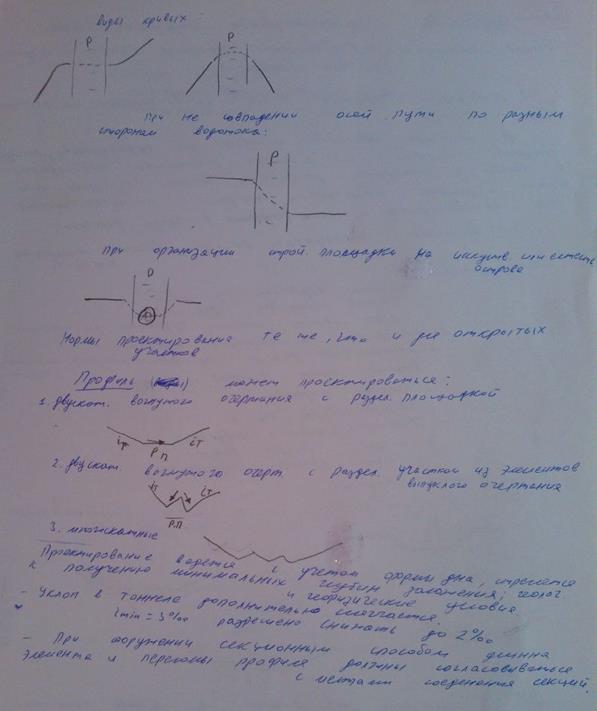 виды кривых:
Р
Р
При не совпадении осей пути по разным
сторонам водотока:
Р
При организации строй. площадки на искуств. или естеств.
острове
Р
Нормы проектирования те же, что и для открытых
участков
Профиль может проектироваться:
1. двускат. вогнутого очертания с раздел. площадкой
iт
Р.П
iт
2. двускат. вогнутого очерт. с раздел. участком из элементов
выпуклого очертания
iт
iт
Р.П.
3. многоскатные
Проектирование ведется с учетом формы дна, стремятся
к получению минимальных глубин заложения; геолог.
и геофизические условия.
- Уклон в тоннеле дополнительно смягчается.
imin = 3‰ разрешено снижать до 2‰
- При сооружении секционным способом длинна
элемента и переломы профиля должны согласовываться
с местами соединения секций.